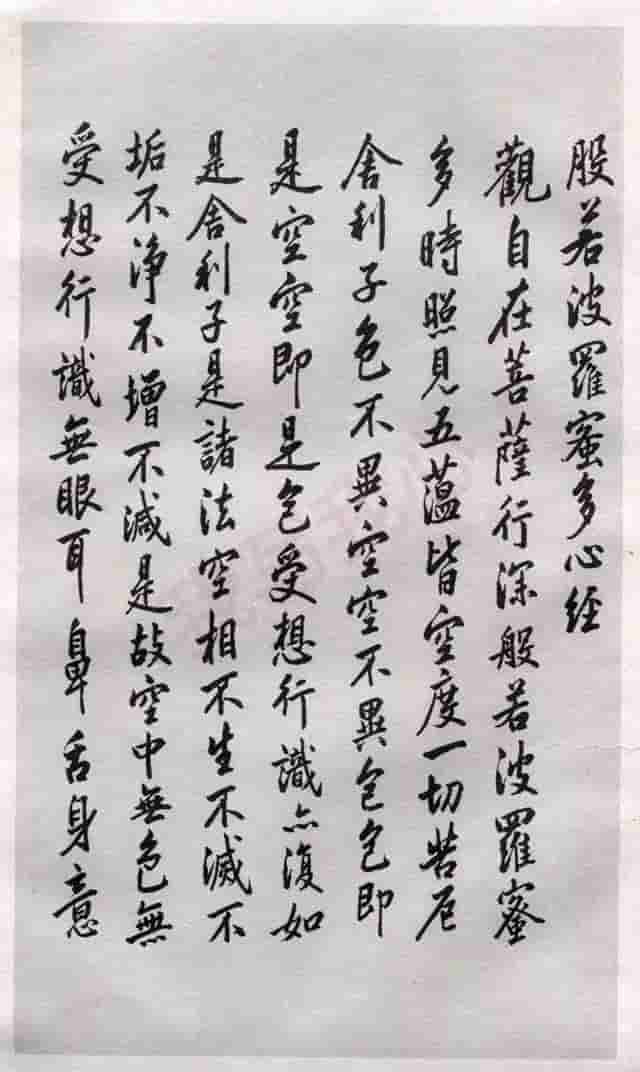 般若波羅蜜多心經
觀自在菩薩行深般若波羅蜜
多時照見五蕴皆空度一切苦厄
舍利子色不異空空不異色色即
是空空即是色受想行識亦復如
是舍利子是諸法空相不生不滅不
垢不净不增不减是故空中無色無
受想行識無眼耳鼻舌身意